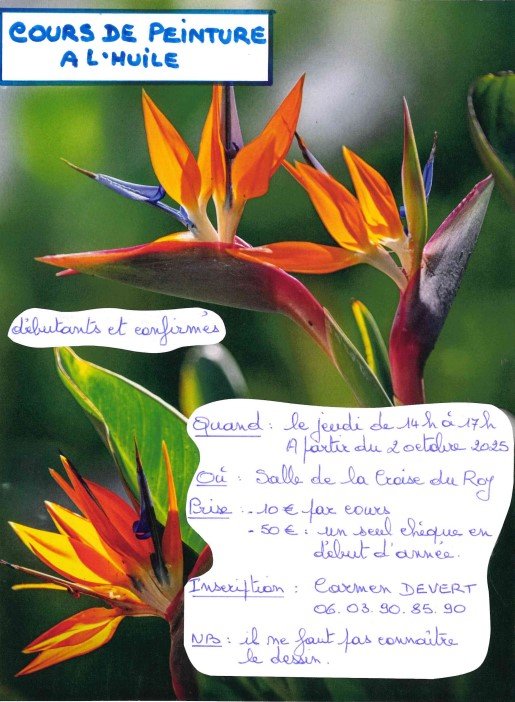 COURS DE PEINTURE
A L'HUILE
débutants et confirmés
Quand : le jeudi de 14h à 17h
A partir du 2 octobre 2025
Où : Salle de la Croise du Roy
Prise : - 10 € par cours
- 50 € : un seul chèque en
début d'année.
Inscription : Carmen DEVERT
06. 03. 90. 85. 90
NB : il ne faut pas connaître
le dessin.